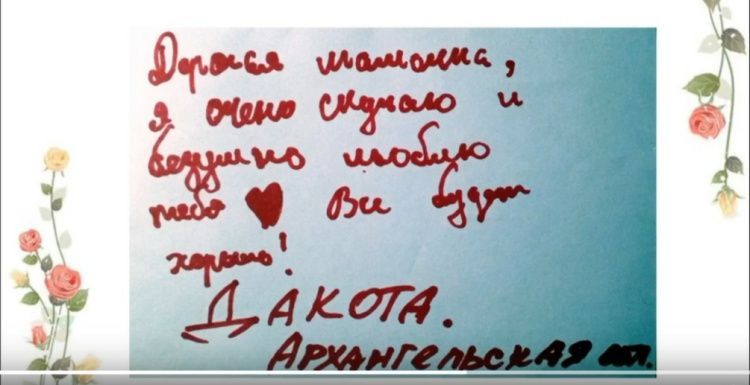 Дорогая мамочка,
я очень скучаю и
безумно люблю
тебя ♥ Все будет
хорошо!
ДАКОТА.
АРХАНГЕЛЬСКАЯ обл.